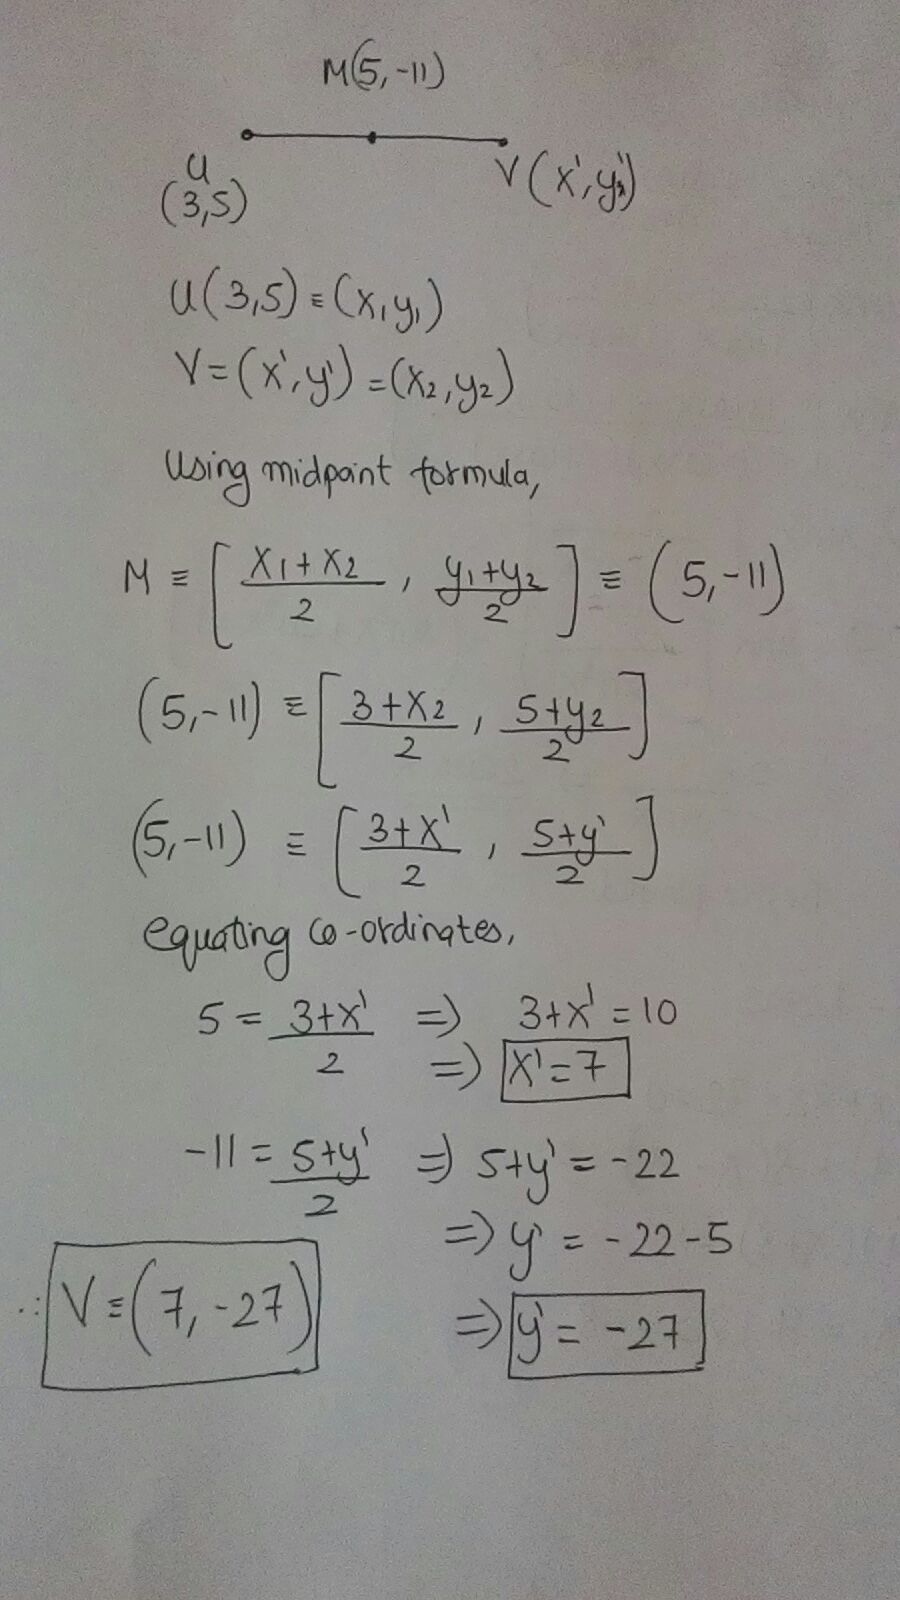 M(5,-11)
U
(3,5)
V(x',y')
U(3,5) ≡ (x₁y₁)
V=(x',y') =(x₂,y₂)
Using midpoint formula,
M ≡ [ (x₁+x₂)/2 , (y₁+y₂)/2 ] ≡ (5,-11)
(5,-11) ≡ [ (3+x₂)/2 , (5+y₂)/2 ]
(5,-11) ≡ [ (3+x')/2 , (5+y')/2 ]
equating co-ordinates,
5 = (3+x')/2 => 3+x' = 10
=> x'=7
-11 = (5+y')/2 => 5+y' = -22
=> y' = -22-5
=> y' = -27
∴ V ≡ (7,-27)